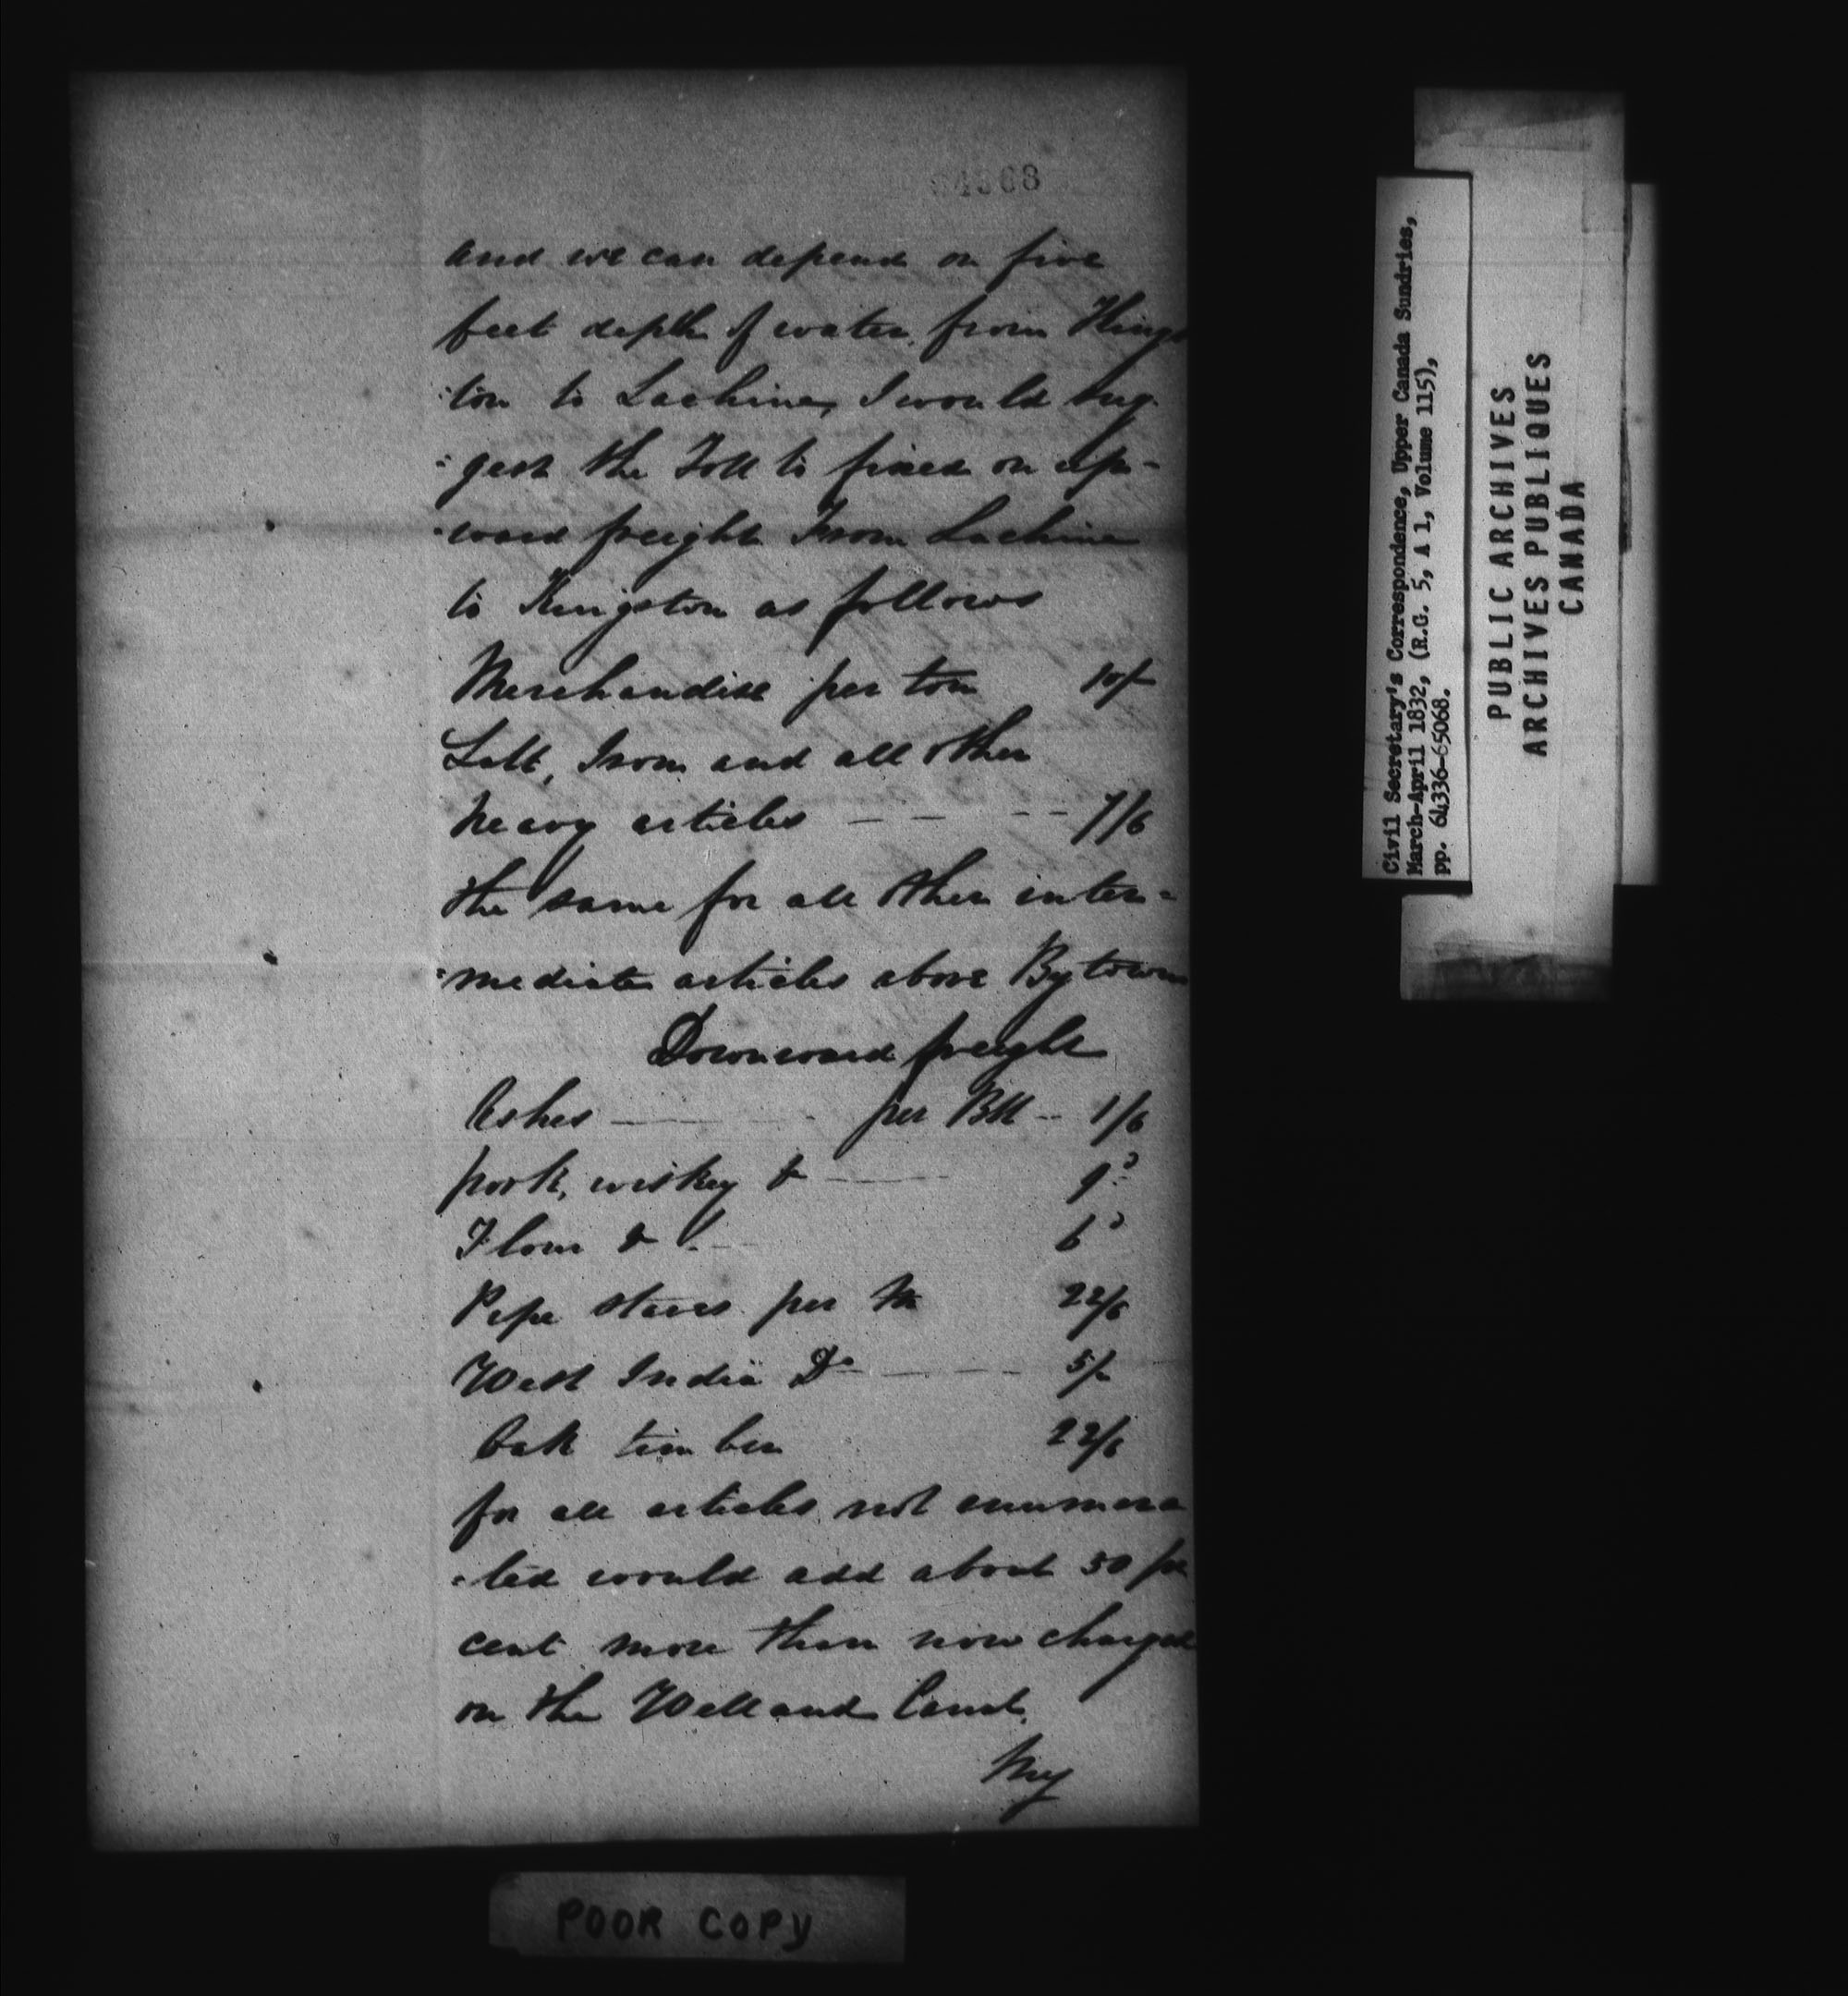 and we can depend on five
feet depth of water from Kings
:ton to Lachine, I would sug
:gest the Toll to fixed on up-
:ward freight From Lachine
to Kingston as follows
Merchandise per ton 10/-
Salt, Iron and all other
heavy articles - - - - 7/6
the same for all other inter=
:mediate articles above Bytown
Downward freight
Ashes - - - per Bll - 1/6
pork, wiskey & - - 9d
Flour & - 6d
Pipe staves per M 22/6
West India Do - - - 5/-
Oak timber 22/6
for all articles not enumera
:ted would add about 50 per
cent more than now charged
on the Welland Canal.
My
POOR COPY
Civil Secretary's Correspondence, Upper Canada Sundries,
March-April 1832, (R.G. 5, A 1, Volume 115),
pp. 64336-65068.
PUBLIC ARCHIVES
ARCHIVES PUBLIQUES
CANADA